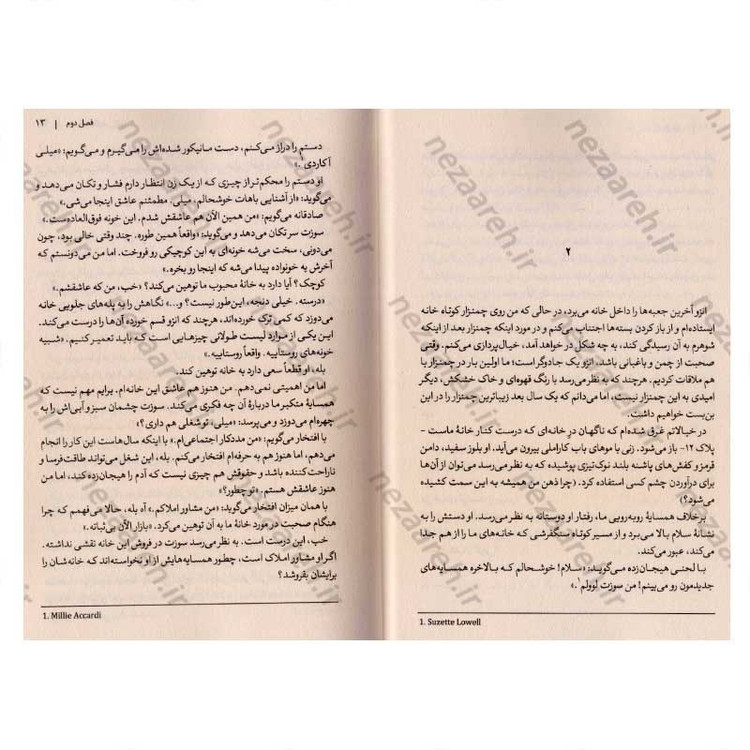 ۲
انزو آخرین جعبه‌ها را داخل خانه می‌برد، در حالی که من روی چمنزار کوتاه خانه
ایستاده‌ام و از باز کردن بسته‌ها اجتناب می‌کنم و در مورد اینکه چمنزار بعد از اینکه
شوهرم به آن رسیدگی کند، به چه شکل در خواهد آمد، خیال‌پردازی می‌کنم. وقتی
صحبت از چمن و باغبانی باشد، انزو یک جادوگر است؛ ما اولین بار در چمنزار با
هم ملاقات کردیم. هرچند که به نظر می‌رسد با رنگ قهوه‌ای و خاک خشکش، دیگر
امیدی به این چمنزار نیست، اما می‌دانم که یک سال بعد زیباترین چمنزار را در این
بن‌بست خواهیم داشت.
در خیالاتم غرق شده‌ام که ناگهان درِ خانه‌ای که درست کنار خانهٔ ماست -
پلاک ۱۲- باز می‌شود. زنی با موهای باب کاراملی بیرون می‌آید. او بلوز سفید، دامن
قرمز و کفش‌های پاشنه بلند نوک‌تیزی پوشیده که به نظر می‌رسد می‌توان از آن‌ها
برای درآوردن چشم کسی استفاده کرد. (چرا ذهن من همیشه به این سمت کشیده
می‌شود؟)
برخلاف همسایهٔ روبه‌رویی ما، رفتار او دوستانه به نظر می‌رسد. او دستش را به
نشانهٔ سلام بالا می‌برد و از مسیر کوتاه سنگفرشی که خانه‌های ما را از هم جدا
می‌کند، عبور می‌کند.
با لحنی هیجان‌زده می‌گوید: «سلام! خوشحالم که بالاخره همسایه‌های
جدیدمون رو می‌بینم! من سوزت لوولم¹.»
1. Suzette Lowell
فصل دوم | ۱۳
دستم را دراز می‌کنم، دست مانیکور شده‌اش را می‌گیرم و می‌گویم: «میلی
آکاردی¹.»
او دستم را محکم‌تر از چیزی که از یک زن انتظار دارم فشار و تکان می‌دهد و
می‌گوید: «از آشنایی باهات خوشحالم، میلی. مطمئنم عاشق اینجا می‌شی.»
صادقانه می‌گویم: «من همین الآن هم عاشقش شدم. این خونه فوق‌العاده‌ست.»
سوزت سر تکان می‌دهد و می‌گوید: «واقعاً همین طوره. چند وقتی خالی بود، چون
می‌دونی، سخت می‌شه خونه‌ای به این کوچیکی رو فروخت. اما من می‌دونستم که
آخرش یه خونواده پیدا می‌شه که اینجا رو بخره.»
کوچک؟ آیا دارد به خانهٔ محبوب ما توهین می‌کند؟ «خب، من که عاشقشم.»
«درسته. خیلی دنجه، این‌طور نیست؟ و...» نگاهش را به پله‌های جلویی خانه
می‌دوزد که کمی ترک خورده‌اند، هرچند که انزو قسم خورده آن‌ها را درست می‌کند.
این یکی از موارد لیست طولانی چیزهایی است که باید تعمیر کنیم. «شبیه
خونه‌های روستاییه. واقعاً روستاییه.»
بله، او قطعاً سعی دارد به خانه توهین کند.
اما من اهمیتی نمی‌دهم. من هنوز هم عاشق این خانه‌ام. برایم مهم نیست که
همسایهٔ متکبر ما دربارهٔ آن چه فکری می‌کند. سوزت چشمان سبز و آبی‌اش را به
چهره‌ام می‌دوزد و می‌پرسد: «میلی، تو شغلی هم داری؟»
با افتخار می‌گویم: «من مددکار اجتماعی‌ام.» با اینکه سال‌هاست این کار را انجام
می‌دهم، اما هنوز هم به حرفه‌ام افتخار می‌کنم. بله، این شغل می‌تواند طاقت‌فرسا و
ناراحت‌کننده باشد و حقوقش هم چیزی نیست که آدم را هیجان‌زده کند، اما من
هنوز عاشقش هستم. «تو چطور؟»
با همان میزان افتخار می‌گوید: «من مشاور املاکم.» آه بله، حالا می‌فهمم که چرا
هنگام صحبت در مورد خانهٔ ما به آن توهین می‌کرد. «بازار الآن بی‌ثباته.»
خب، این درست است. به نظر می‌رسد سوزت در فروش این خانه نقشی نداشته.
اگر او مشاور املاک است، چطور همسایه‌هایش از او نخواسته‌اند که خانه‌شان را
برایشان بفروشد؟
1. Millie Accardi
nezaareh.ir